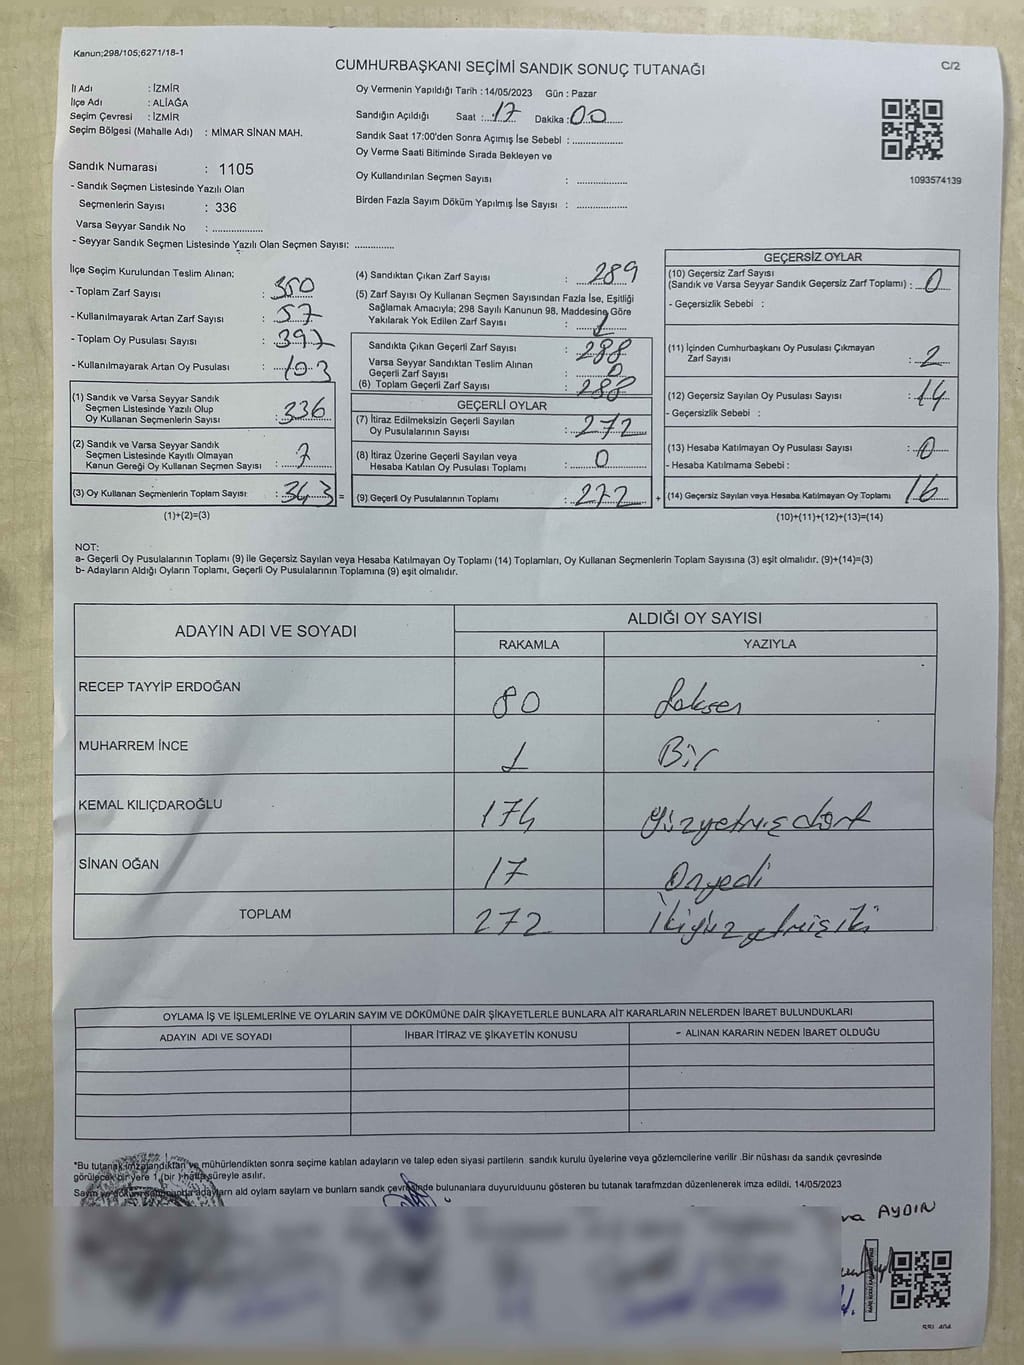 Kanun;298/105;6271/18-1
CUMHURBAŞKANI SEÇİMİ SANDIK SONUÇ TUTANAĞI
C/2
İl Adı : İZMİR
İlçe Adı : ALİAĞA
Seçim Çevresi : İZMİR
Seçim Bölgesi (Mahalle Adı) : MİMAR SİNAN MAH.
Oy Vermenin Yapıldığı Tarih : 14/05/2023 Gün : Pazar
Sandığın Açıldığı Saat :..17 Dakika :00......
Sandık Saat 17:00'den Sonra Açımış İse Sebebi : ..................
Oy Verme Saati Bitiminde Sırada Bekleyen ve
Oy Kullandırılan Seçmen Sayısı : ..................
Birden Fazla Sayım Döküm Yapılmış İse Sayısı : ..................
1093574139
Sandık Numarası : 1105
- Sandık Seçmen Listesinde Yazılı Olan
Seçmenlerin Sayısı : 336
Varsa Seyyar Sandık No : ..................
- Seyyar Sandık Seçmen Listesinde Yazılı Olan Seçmen Sayısı: ..............
İlçe Seçim Kurulundan Teslim Alınan;
- Toplam Zarf Sayısı : 350
- Kullanılmayarak Artan Zarf Sayısı : 57
- Toplam Oy Pusulası Sayısı : 397
- Kullanılmayarak Artan Oy Pusulası : 103
(1) Sandık ve Varsa Seyyar Sandık
Seçmen Listesinde Yazılı Olup
Oy Kullanan Seçmenlerin Sayısı : 336
(2) Sandık ve Varsa Seyyar Sandık
Seçmen Listesinde Kayıtlı Olmayan
Kanun Gereği Oy Kullanan Seçmen Sayısı : 7
(3) Oy Kullanan Seçmenlerin Toplam Sayısı : 343 =
(1)+(2)=(3)
(4) Sandıktan Çıkan Zarf Sayısı : 289
(5) Zarf Sayısı Oy Kullanan Seçmen Sayısından Fazla İse, Eşitliği
Sağlamak Amacıyla; 298 Sayılı Kanunun 98. Maddesine Göre
Yakılarak Yok Edilen Zarf Sayısı : 1
Sandıkta Çıkan Geçerli Zarf Sayısı : 288
Varsa Seyyar Sandıktan Teslim Alınan
Geçerli Zarf Sayısı : 0
(6) Toplam Geçerli Zarf Sayısı : 288
GEÇERLİ OYLAR
(7) İtiraz Edilmeksizin Geçerli Sayılan
Oy Pusulalarının Sayısı : 272
(8) İtiraz Üzerine Geçerli Sayılan veya
Hesaba Katılan Oy Pusulası Toplamı : 0
(9) Geçerli Oy Pusulalarının Toplamı : 272 +
GEÇERSİZ OYLAR
(10) Geçersiz Zarf Sayısı
(Sandık ve Varsa Seyyar Sandık Geçersiz Zarf Toplamı) : 0
- Geçersizlik Sebebi :
(11) İçinden Cumhurbaşkanı Oy Pusulası Çıkmayan
Zarf Sayısı : 2
(12) Geçersiz Sayılan Oy Pusulası Sayısı : 14
- Geçersizlik Sebebi :
(13) Hesaba Katılmayan Oy Pusulası Sayısı : 0
- Hesaba Katılmama Sebebi :
(14) Geçersiz Sayılan veya Hesaba Katılmayan Oy Toplamı 16
(10)+(11)+(12)+(13)=(14)
NOT:
a- Geçerli Oy Pusulalarının Toplamı (9) ile Geçersiz Sayılan veya Hesaba Katılmayan Oy Toplamı (14) Toplamları, Oy Kullanan Seçmenlerin Toplam Sayısına (3) eşit olmalıdır. (9)+(14)=(3)
b- Adayların Aldığı Oyların Toplamı, Geçerli Oy Pusulalarının Toplamına (9) eşit olmalıdır.
ADAYIN ADI VE SOYADI
ALDIĞI OY SAYISI
RAKAMLA YAZIYLA
RECEP TAYYİP ERDOĞAN 80 Seksen
MUHARREM İNCE 1 Bir
KEMAL KILIÇDAROĞLU 174 Yüzyetmişdört
SİNAN OĞAN 17 Onyedi
TOPLAM 272 İkiyüzyetmişiki
OYLAMA İŞ VE İŞLEMLERİNE VE OYLARIN SAYIM VE DÖKÜMÜNE DAİR ŞİKAYETLERLE BUNLARA AİT KARARLARIN NELERDEN İBARET BULUNDUKLARI
ADAYIN ADI VE SOYADI İHBAR İTİRAZ VE ŞİKAYETİN KONUSU - ALINAN KARARIN NEDEN İBARET OLDUĞU
*Bu tutanak imzalandıktan ve mühürlendikten sonra seçime katılan adayların ve talep eden siyasi partilerin sandık kurulu üyelerine veya gözlemcilerine verilir .Bir nüshası da sandık çevresinde
görülecek bir yere 1 (bir ) hafta süreyle asılır.
adayların ald oylam saylam ve bunlam sandk çevresinde bulunanlara duyurulduunu gösteren bu tutanak tarafmzdan düzenlenerek imza edildi. 14/05/2023
AYDIN